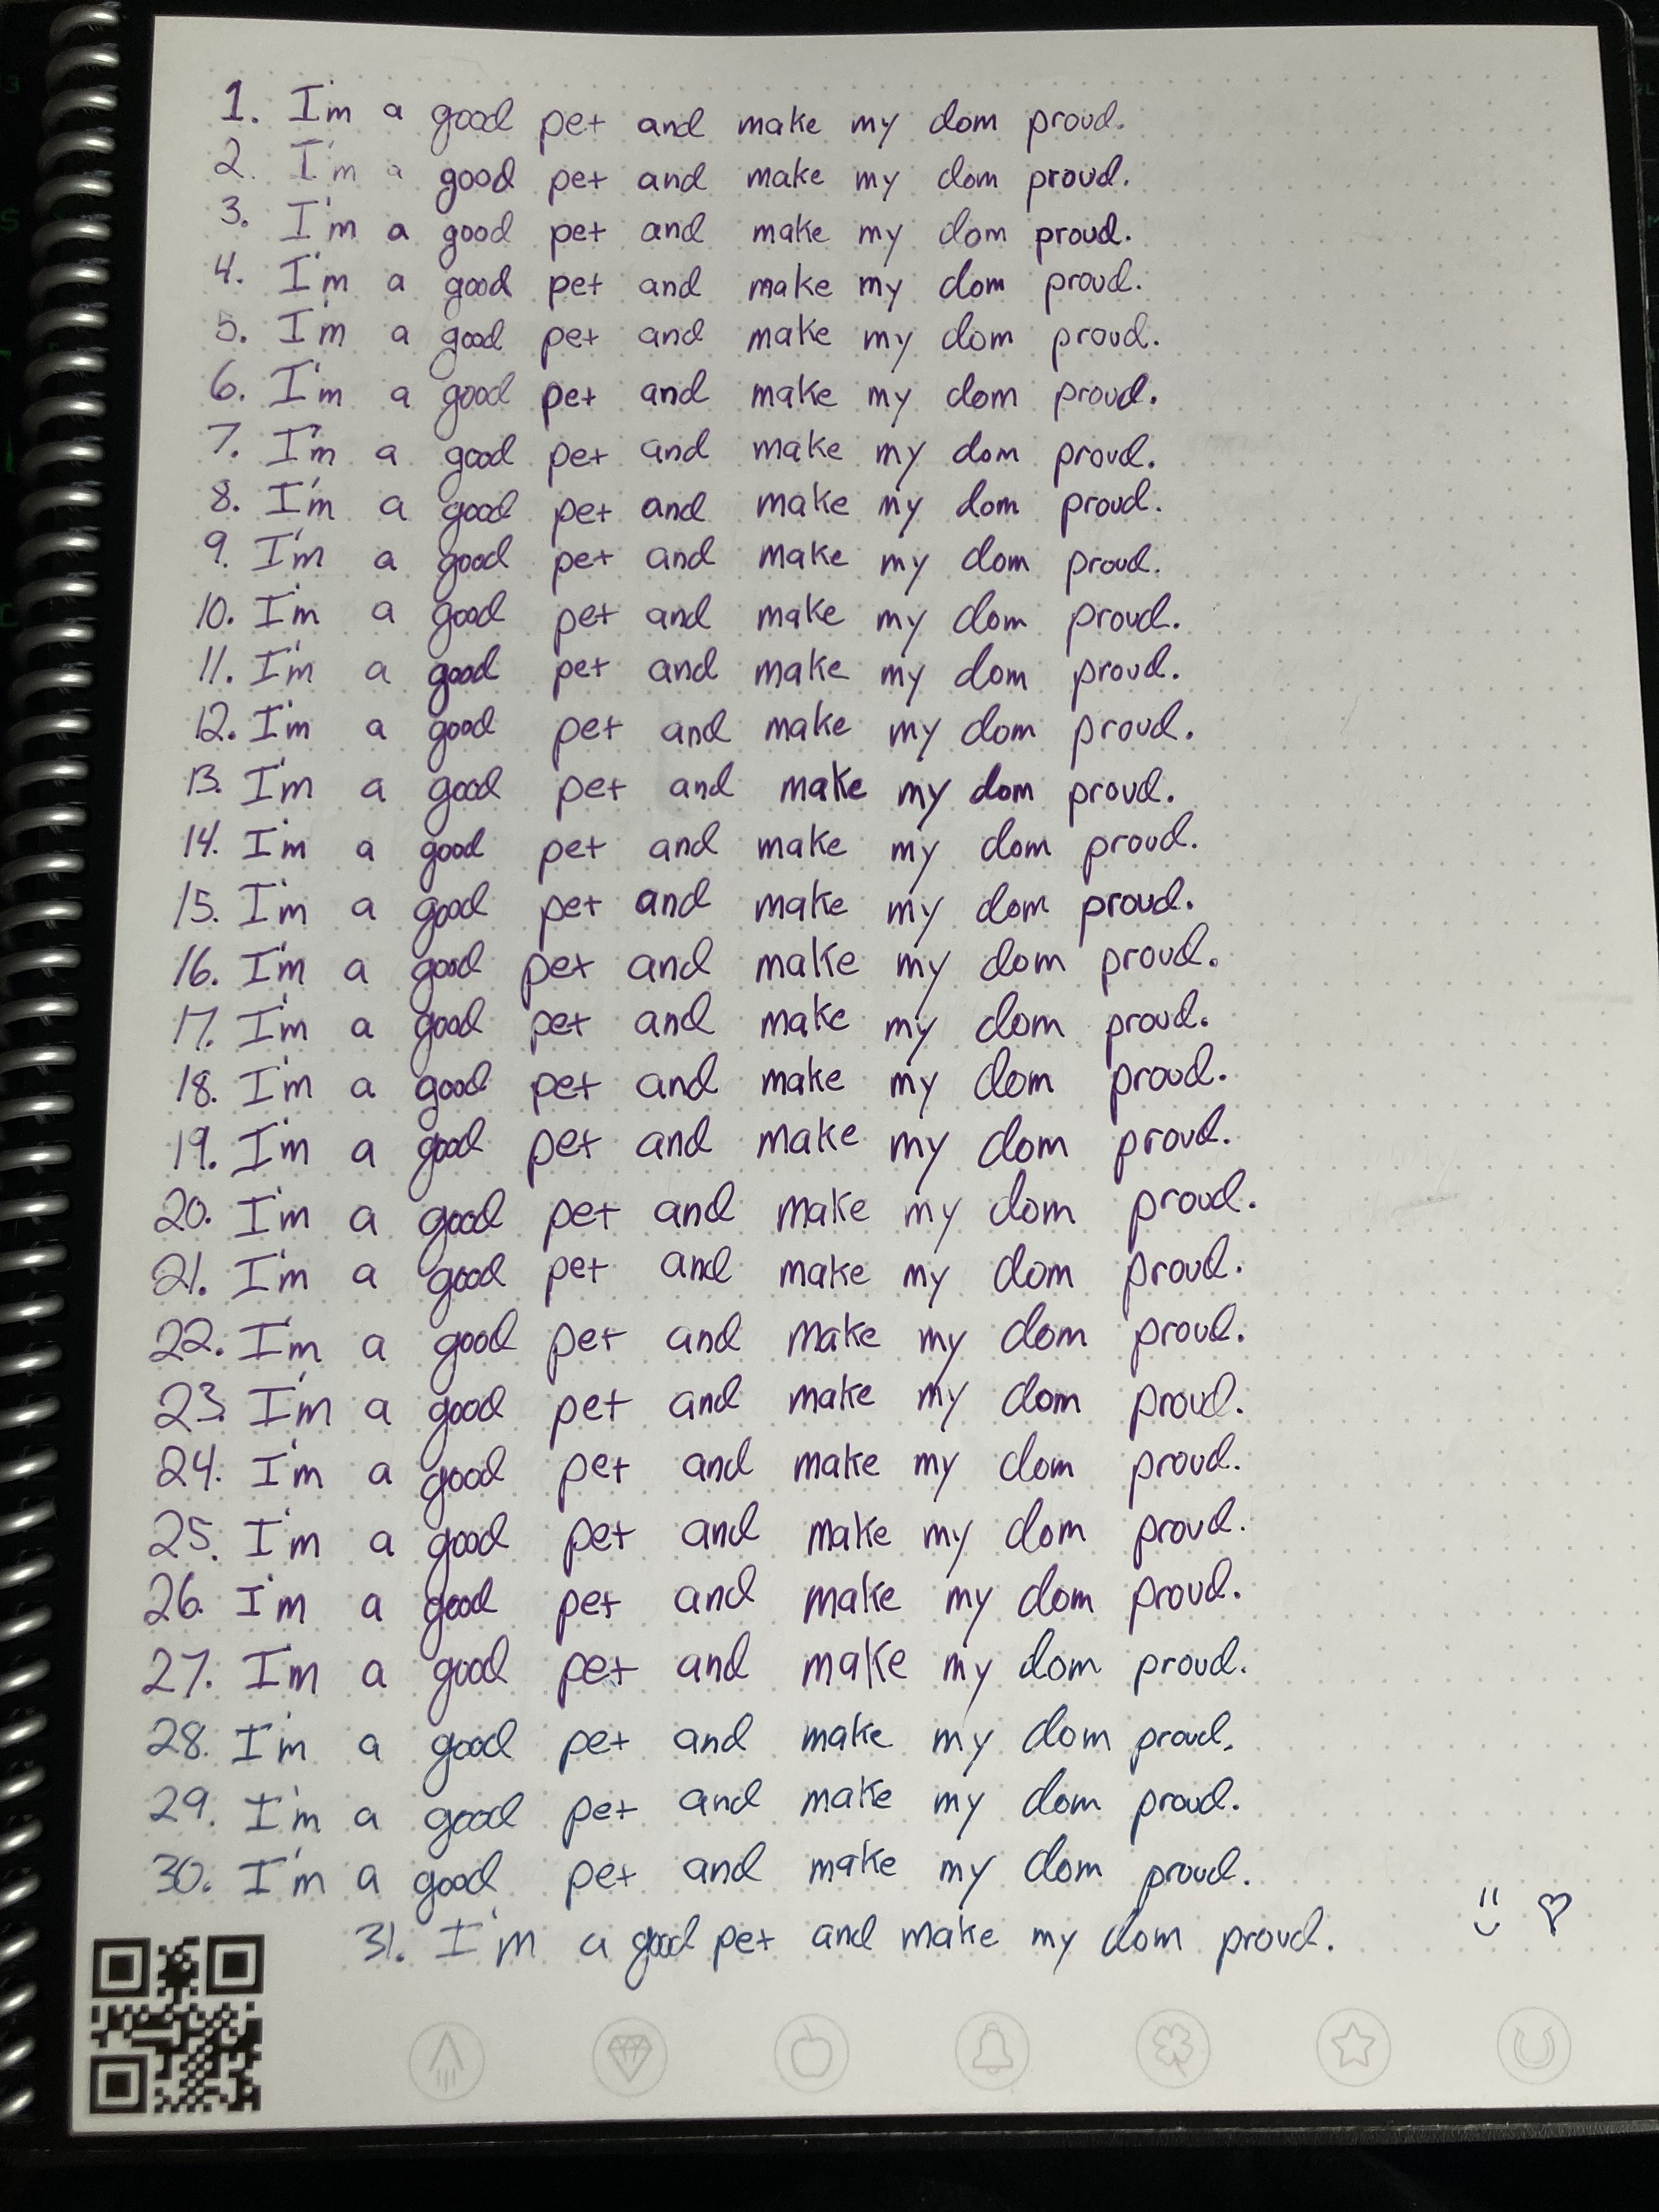 1. I'm a good pet and make my dom proud.
2. I'm a good pet and make my dom proud.
3. I'm a good pet and make my dom proud.
4. I'm a good pet and make my dom proud.
5. I'm a good pet and make my dom proud.
6. I'm a good pet and make my dom proud.
7. I'm a good pet and make my dom proud.
8. I'm a good pet and make my dom proud.
9. I'm a good pet and make my dom proud.
10. I'm a good pet and make my dom proud.
11. I'm a good pet and make my dom proud.
12. I'm a good pet and make my dom proud.
13. I'm a good pet and make my dom proud.
14. I'm a good pet and make my dom proud.
15. I'm a good pet and make my dom proud.
16. I'm a good pet and make my dom proud.
17. I'm a good pet and make my dom proud.
18. I'm a good pet and make my dom proud.
19. I'm a good pet and make my dom proud.
20. I'm a good pet and make my dom proud.
21. I'm a good pet and make my dom proud.
22. I'm a good pet and make my dom proud.
23. I'm a good pet and make my dom proud.
24. I'm a good pet and make my dom proud.
25. I'm a good pet and make my dom proud.
26. I'm a good pet and make my dom proud.
27. I'm a good pet and make my dom proud.
28. I'm a good pet and make my dom proud.
29. I'm a good pet and make my dom proud.
30. I'm a good pet and make my dom proud.
31. I'm a good pet and make my dom proud.